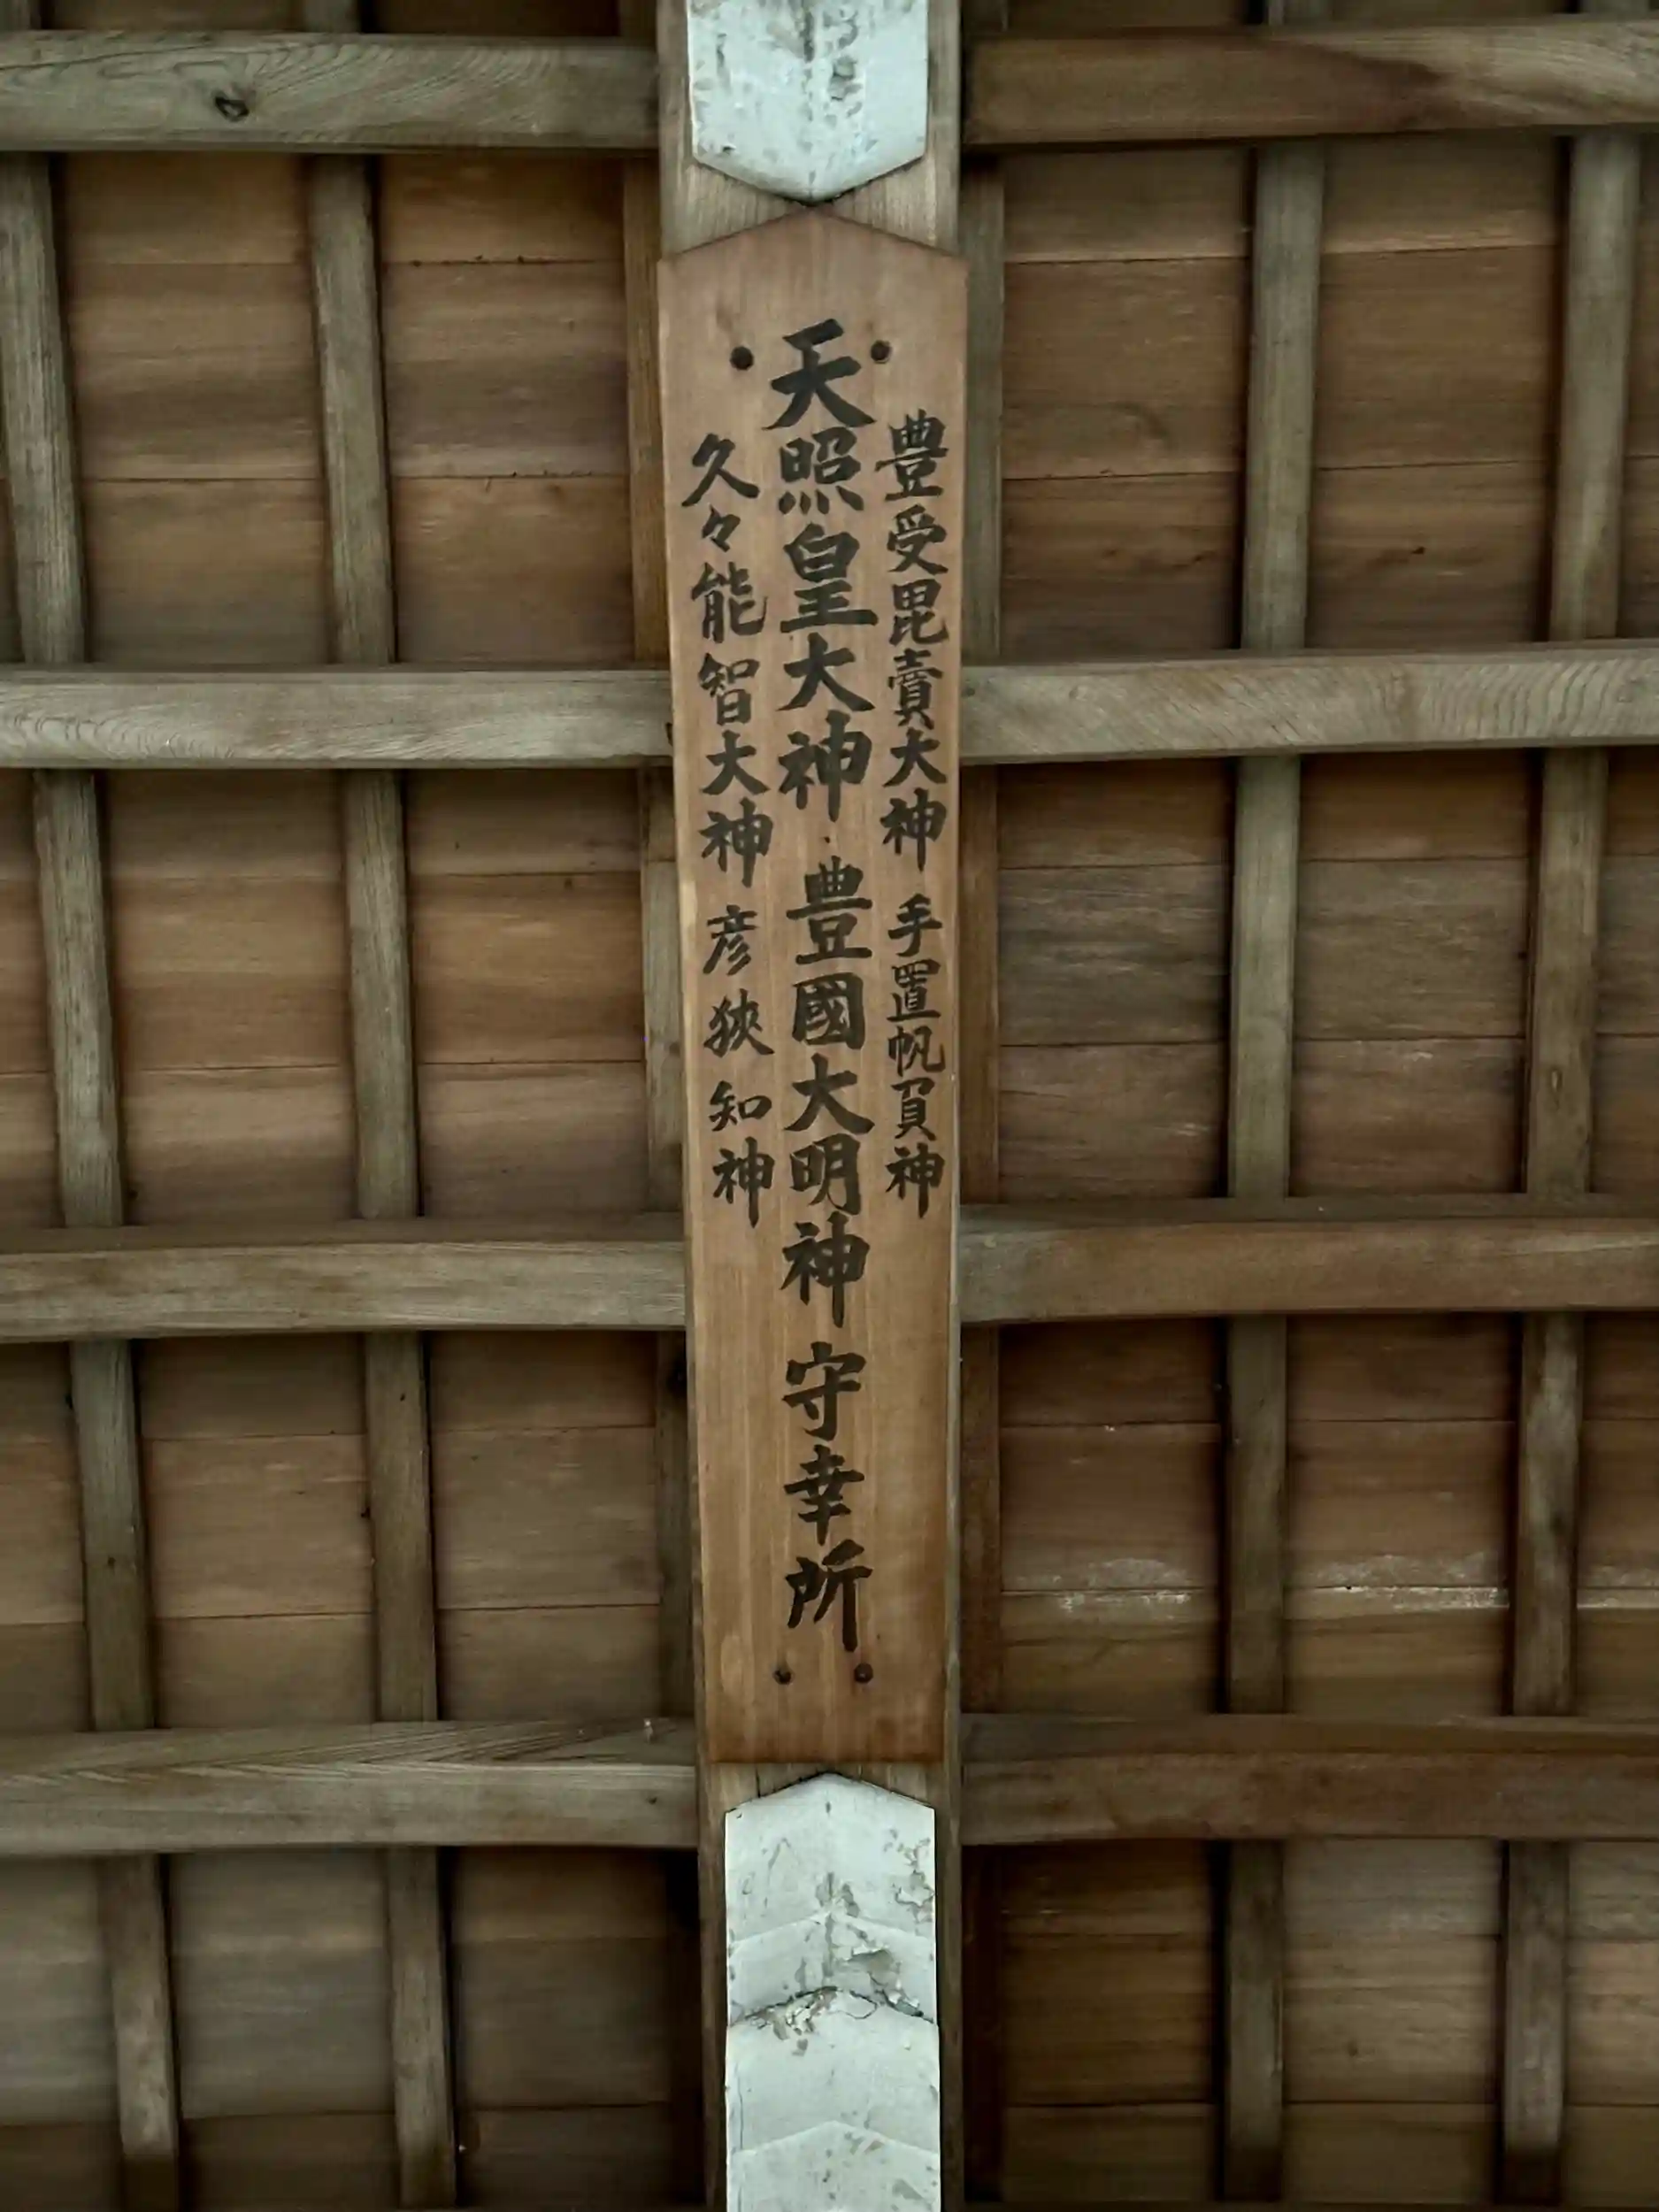 豊受毘賣大神 手置帆負神
天照皇大神 豊國大明神 守幸所
久々能智大神 彦狹知神